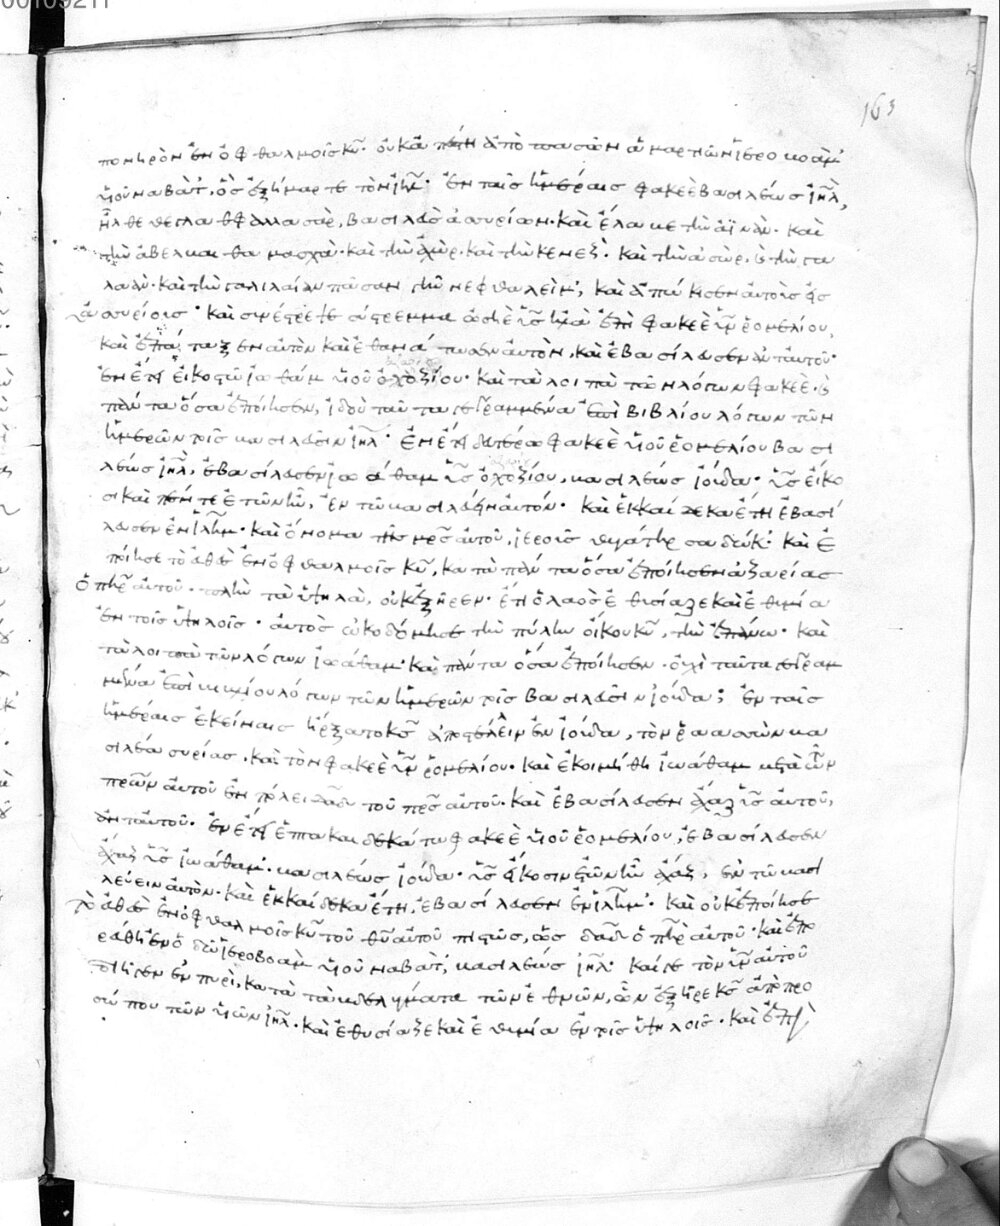 163
πονηρὸν ἐν ὀφθαλμοῖς κυ̅. οὐκ ἀπέστη ἀπὸ πασῶν ἁμαρτιῶν ἱεροβοὰμ
υἱοῦ ναβὰτ, ὃς ἐξήμαρτε τὸν ιη̅λ. ἐν ταῖς ἡμέραις φακεὲ βασιλέως ιη̅λ,
ἦλθε θεγλαθφαλλασὰρ, βασιλεὺς ἀσσυρίων. καὶ ἔλαβε τὴν ἀϊνὰν. καὶ
τὴν ἀβελ καὶ θαμααχὰ. καὶ τὴν ἀχὼρ. καὶ τὴν κενὲζ. καὶ τὴν ἀσὼρ, καὶ τὴν γα
λαὰν. καὶ τὴν γαλιλαίαν πᾶσαν γῆν νεφθαλεὶμ, καὶ ἀπῴκισεν αὐτοὺς εἰς
ἀσσυρίους. καὶ συνέστρεψε σύστρεμμα ὡσηὲ υἱὸς ἠλὰ ἐπὶ φακεὲ υἱὸν ῥομελίου,
καὶ ἐπάταξεν αὐτὸν καὶ ἐθανάτωσεν αὐτὸν, καὶ ἐβασίλευσεν ἀντ' αὐτοῦ.
ἐν ἔτει εἰκοστῶ ἰωθάμ υἱοῦ ὀχοζίου. καὶ τὰ λοιπὰ τῶν λόγων φακεὲ. καὶ
πάντα ὅσα ἐποίησεν, ἰδοὺ ταῦτα γεγραμμένα ἐπὶ βιβλίου λόγων τῶν
ἡμερῶν τοῖς βασιλεῦσιν ιη̅λ. ἐν ἔτει δευτέρω φακεὲ υἱοῦ ῥομελίου βασι
λέως ιη̅λ, ἐβασίλευσεν ἰωάθαμ υἱὸς ὀχοζίου, βασιλέως ἰούδα. υἱὸς εἴκο
σι καὶ πέντε ἐτῶν ἦν, ἐν τῶ βασιλεύειν αὐτόν. καὶ ἑκκαίδεκα ἔτη ἐβασί
λευσεν ἐν ἱλη̅μ. καὶ ὄνομα τῆς μρ̅ς αὐτοῦ, ἱεροὺς θυγάτηρ σαδώκ. καὶ ἐ
ποίησε τὸ εὐθὲς ἐν ὀφθαλμοῖς κυ̅, κατὰ πάντα ὅσα ἐποίησεν ἀζαρίας
ὁ πη̅ρ αὐτοῦ. πλὴν τὰ ὑψηλὰ, οὐκ ἐξῆρεν. ἔτι ὁ λαὸς ἐθυσίαζε καὶ ἐθυμία
ἐν τοῖς ὑψηλοῖς. αὐτὸς ὠκοδόμησε τὴν πύλην οἴκου κυ̅, τὴν ἐπάνω. καὶ
τὰ λοιπὰ τῶν λόγων ἰωάθαμ. καὶ πάντα ὅσα ἐποίησεν. οὐχὶ ταῦτα γεγραμ
μένα ἐπὶ βιβλίου λόγων τῶν ἡμερῶν τοῖς βασιλεῦσιν ἰούδα; ἐν ταῖς
ἡμέραις ἐκείναις ἤρξατο κς̅ ἀποστέλλειν ἐν ἰούδα, τὸν ῥαασσὼν βα
σιλέα συρίας, καὶ τὸν φακεὲ υἱὸν ῥομελίου. καὶ ἐκοιμήθη ἰωάθαμ μετὰ τῶν
πρ̅ων αὐτοῦ ἐν πόλει δαδ̅ τοῦ πρ̅ς αὐτοῦ. καὶ ἐβασίλευσεν ἄχαζ υἱὸς αὐτοῦ,
ἀντ' αὐτοῦ. ἐν ἔτει ἑπτακαιδεκάτω φακεὲ υἱοῦ ῥομελίου, ἐβασίλευσεν
ἄχαζ υἱὸς ἰωάθαμ. βασιλέως ἰούδα. υἱὸς εἴκοσιν ἐτῶν ἦν ἄχαζ, ἐν τῶ βασι
λεύειν αὐτὸν. καὶ ἑκκαίδεκα ἔτη, ἐβασίλευσεν ἐν ἱλη̅μ. καὶ οὐκ ἐποίησε
τὸ εὐθὲς ἐν ὀφθαλμοῖς κυ̅ τοῦ θυ̅ αὐτοῦ πιστῶς, ὡς δαδ̅ ὁ πη̅ρ αὐτοῦ. καὶ ἐπο
ρεύθη ἐν ὁδῶ ἱεροβοὰμ υἱοῦ ναβὰτ, βασιλέως ιη̅λ. καί γε τὸν υἱὸν αὐτοῦ
διῆγεν ἐν πυρὶ, κατὰ τὰ βδελύγματα τῶν ἐθνῶν, ὧν ἐξῆρε κς̅ ἀπὸ προ
σώπου τῶν υἱῶν ιη̅λ. καὶ ἐθυσίαζε καὶ ἐθυμία ἐν τοῖς ὑψηλοῖς. καὶ ἐπὶ